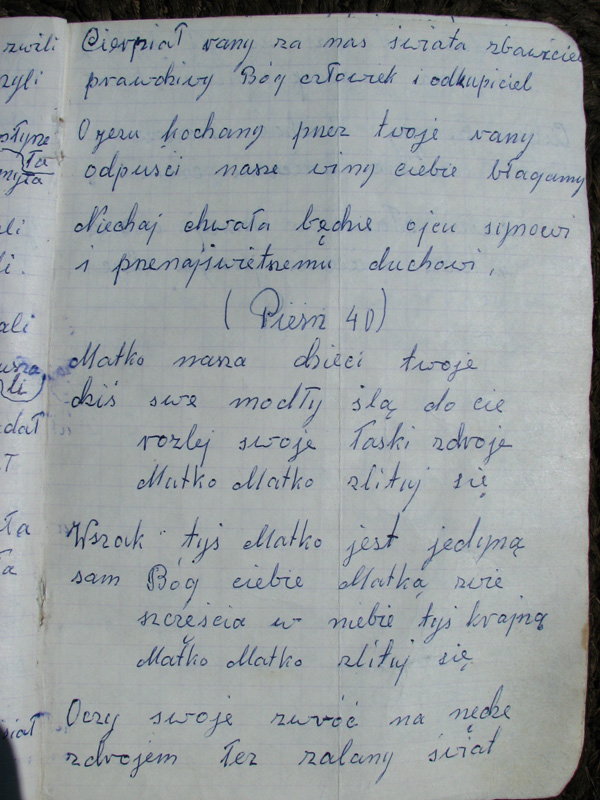 Cierpiał rany za nas świata zbawiciel
prawdziwy Bóg człowiek i odkupiciel
O Jezu kochany przez twoje rany
odpuści nasze winy ciebie błagamy
Niechaj chwała będzie ojcu synowi
i przenajświetszemu duchowi,
(Pieśń 40)
Matko nasza dzieci twoje
dziś swe modły ślą do cie
rozlej swoje łaski zdroje
Matko Matko zlituj się
Wszak tyś Matko jest jedyną
sam Bóg ciebie Matką zwie
szczęścia w niebie tyś krajną
Matko Matko zlituj się
Oczy swoje zwróć na nędze
zdrojem łez zalany świat